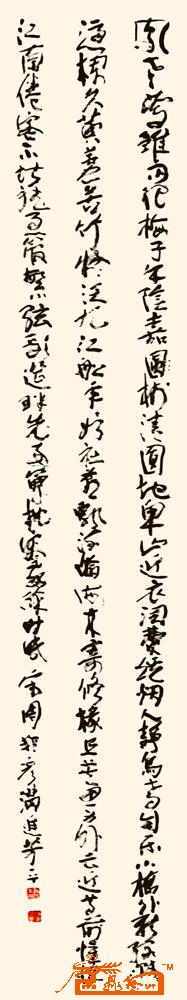 風老鶯雛雨肥梅子午陰嘉樹清圓地卑山近衣潤費爐烟人静烏鳶自樂小橋外新綠濺濺
憑欄久黄蘆苦竹擬泛九江船年年如社燕飄流瀚海來寄修椽且莫思身外長近尊前憔悴
江南倦客不堪聽急管繁弦歌筵畔先安簟枕容我醉時眠 宋周邦彦滿庭芳